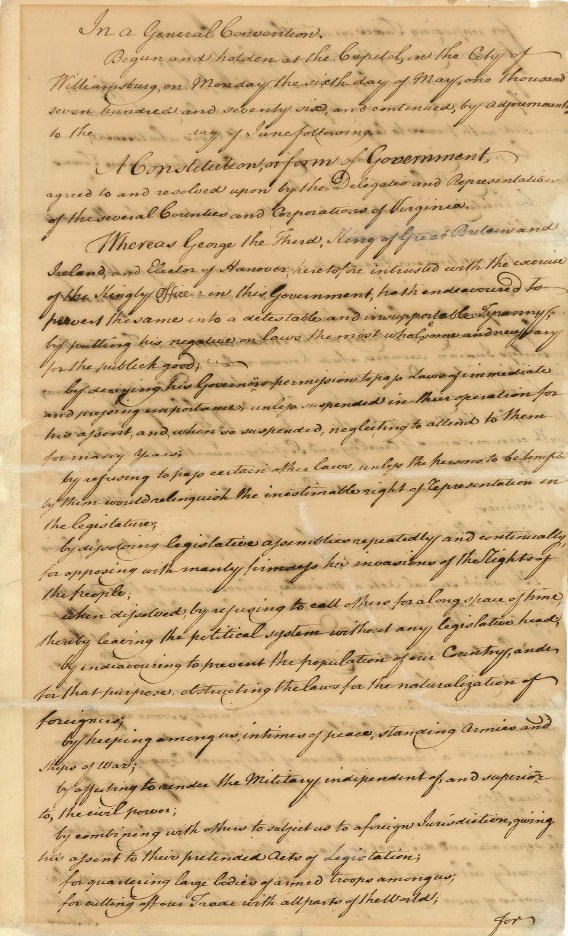 In a General Convention.
Begun and holden at the Capitol, in the City of
Williamsburg, on Monday the sixth day of May, one thousand
seven hundred and seventy six, and continued, by adjournments
to the day of June following.
A Constitution, or form of Government,
agreed to and resolved upon by the Delegates and Representatives
of the several Counties and Corporations of Virginia.
Whereas George the Third, King of Great Britain and
Ireland, and Elector of Hanover, heretofore intrusted with the exercise
of the Kingly Office in this Government, hath endeavoured to
pervert the same into a detestable and insupportable Tyranny;
by putting his negative on laws the most wholesome and necessary
for the publick good;
by denying his Governors permission to pass Laws of immediate
and pressing importance, unless suspended in their operation for
his assent, and, when so suspended, neglecting to attend to them
for many Years;
by refusing to pass certain other laws, unless the persons to be benefited
by them would relinquish the inestimable right of representation in
the legislature;
by dissolving legislative assemblies repeatedly and continually,
for opposing with manly firmness his invasions of the Rights of
the people;
when dissolved, by refusing to call others for a long space of time,
thereby leaving the political system without any legislative head;
by endeavouring to prevent the population of our Country, and
for that purpose, obstructing the laws for the naturalization of
foreigners;
by keeping among us, in times of peace, standing Armies and
Ships of War;
by affecting to render the Military independent of, and superior
to, the civil power;
by combining with others to subject us to a foreign Jurisdiction, giving
his assent to their pretended Acts of Legislation;
for quartering large bodies of armed troops among us;
for cutting off our Trade with all parts of the World;
for